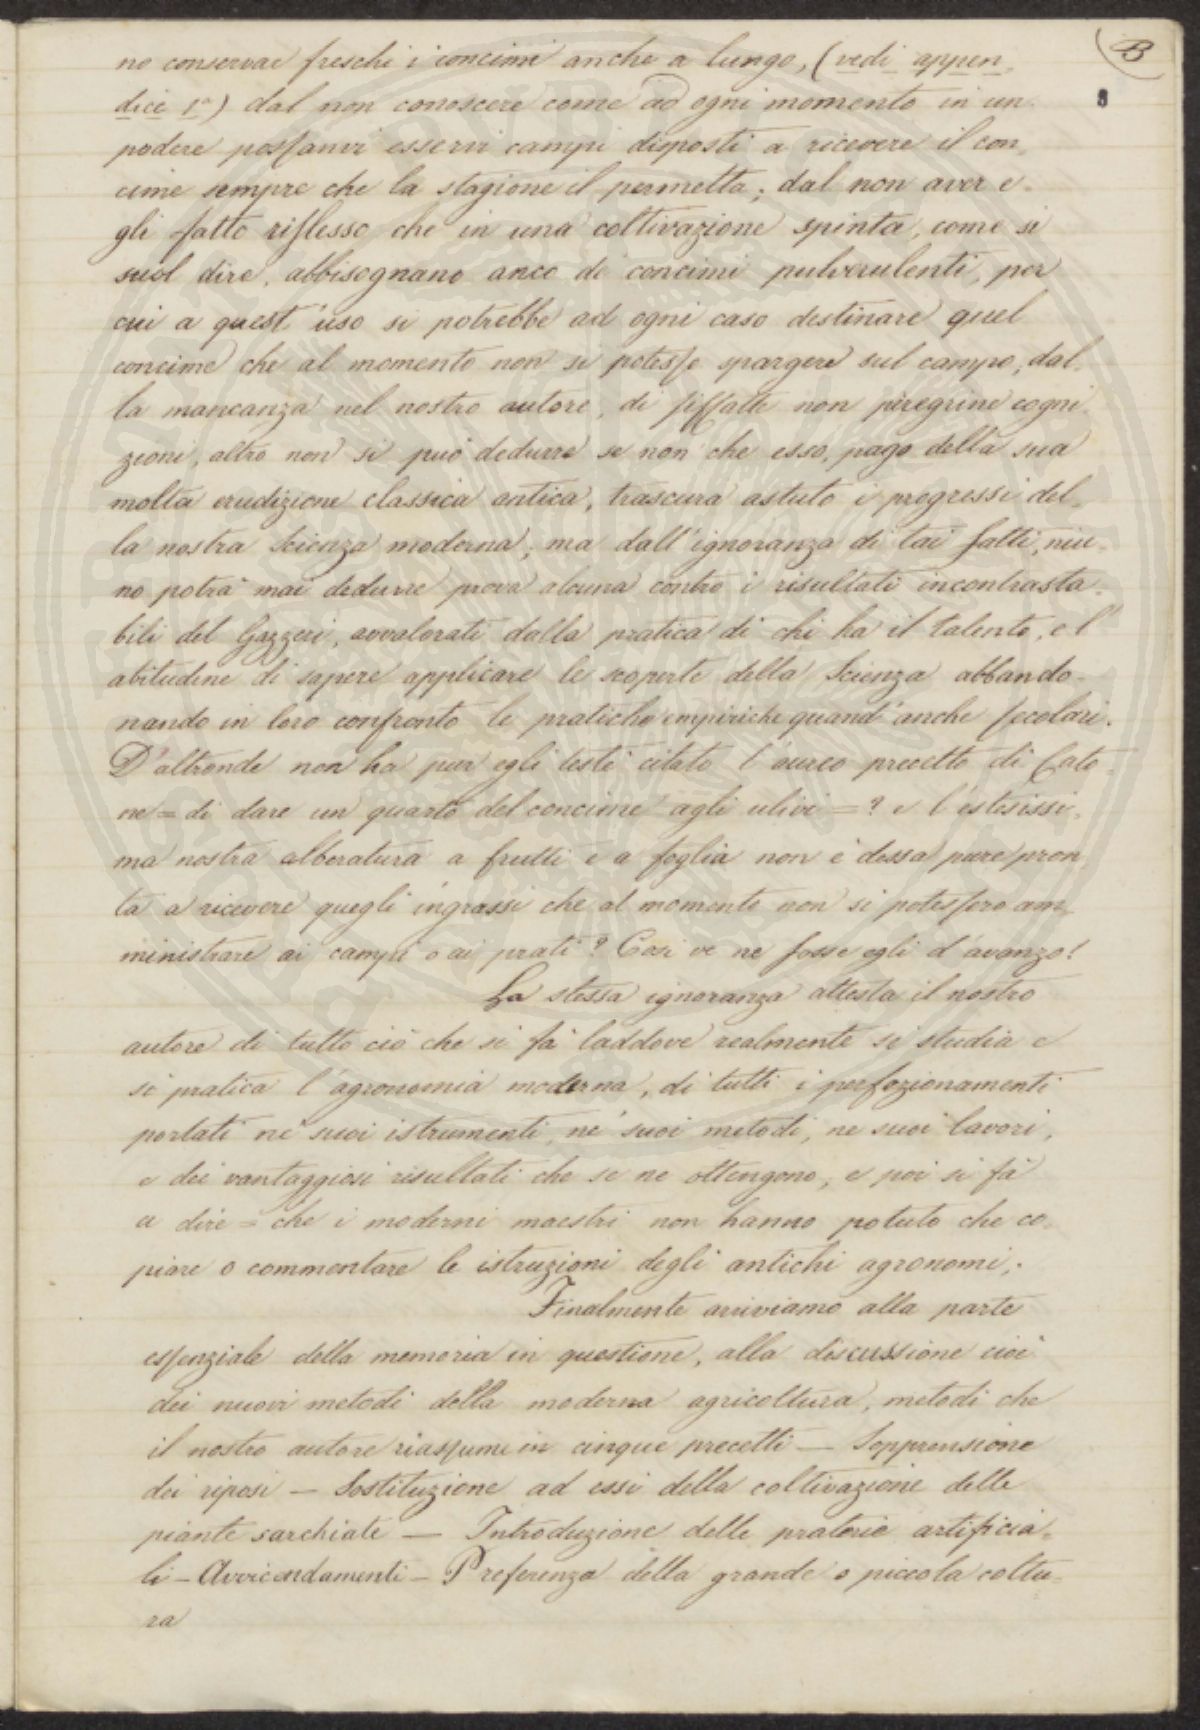 B
8
no conservar freschi i concimi anche a lungo, (vedi appen-
dice 1a) dal non conoscere come ad ogni momento in un
podere possanvi esservi campi disposti a ricevere il con
cime sempre che la stagione il permetta; dal non aver e-
gli fatto riflesso che in una coltivazione spinta, come si
suol dire, abbisognano anco di concimi pulverulenti, per
cui a quest'uso si potrebbe ad ogni caso destinare quel
concime che al momento non si potesse spargere sul campo, dal-
la mancanza nel nostro autore, di siffatte non peregrine cogni
zioni, altro non si può dedurre se non che esso, pago della sua
molta erudizione classica antica, trascura astuto i progressi del-
la nostra Scienza moderna; ma dall'ignoranza di tai fatti, niu-
no potrà mai dedurre prova alcuna contro i risultati incontrasta-
bili del Gazzeri, avvalorati dalla pratica di chi ha il talento, e l'
abitudine di sapere applicare le scoperte della Scienza abbando-
nando in loro confronto le pratiche empiriche quand'anche secolari.
D'altronde non ha pur egli testè citato l'aureo precetto di Cato-
ne = di dare un quarto del concime agli ulivi = ? e l'estesissi-
ma nostra alberatura a frutti e a foglia non è dessa pure pron
ta a ricevere quegli ingrassi che al momento non si potessero am-
ministrare ai campi o ai prati? Così ve ne fosse egli d'avanzo!
La stessa ignoranza attesta il nostro
autore di tutto ciò che si fà laddove realmente si studia e
si pratica l'agronomia moderna, di tutti i perfezionamenti
portati ne' suoi istrumenti, ne' suoi metodi, ne suoi lavori,
e dei vantaggiosi risultati che se ne ottengono, e poi si fà
a dire = che i moderni maestri non hanno potuto che co-
piare o commentare le istruzioni degli antichi agronomi;.
Finalmente arriviamo alla parte
essenziale della memoria in questione, alla discussione cioè
dei nuovi metodi della moderna agricoltura, metodi che
il nostro autore riassume in cinque precetti — Soppressione
dei riposi — Sostituzione ad essi della coltivazione delle
piante sarchiate — Introduzione delle praterie artificia-
li — Avvicendamenti — Preferenza della grande o piccola coltu-
ra